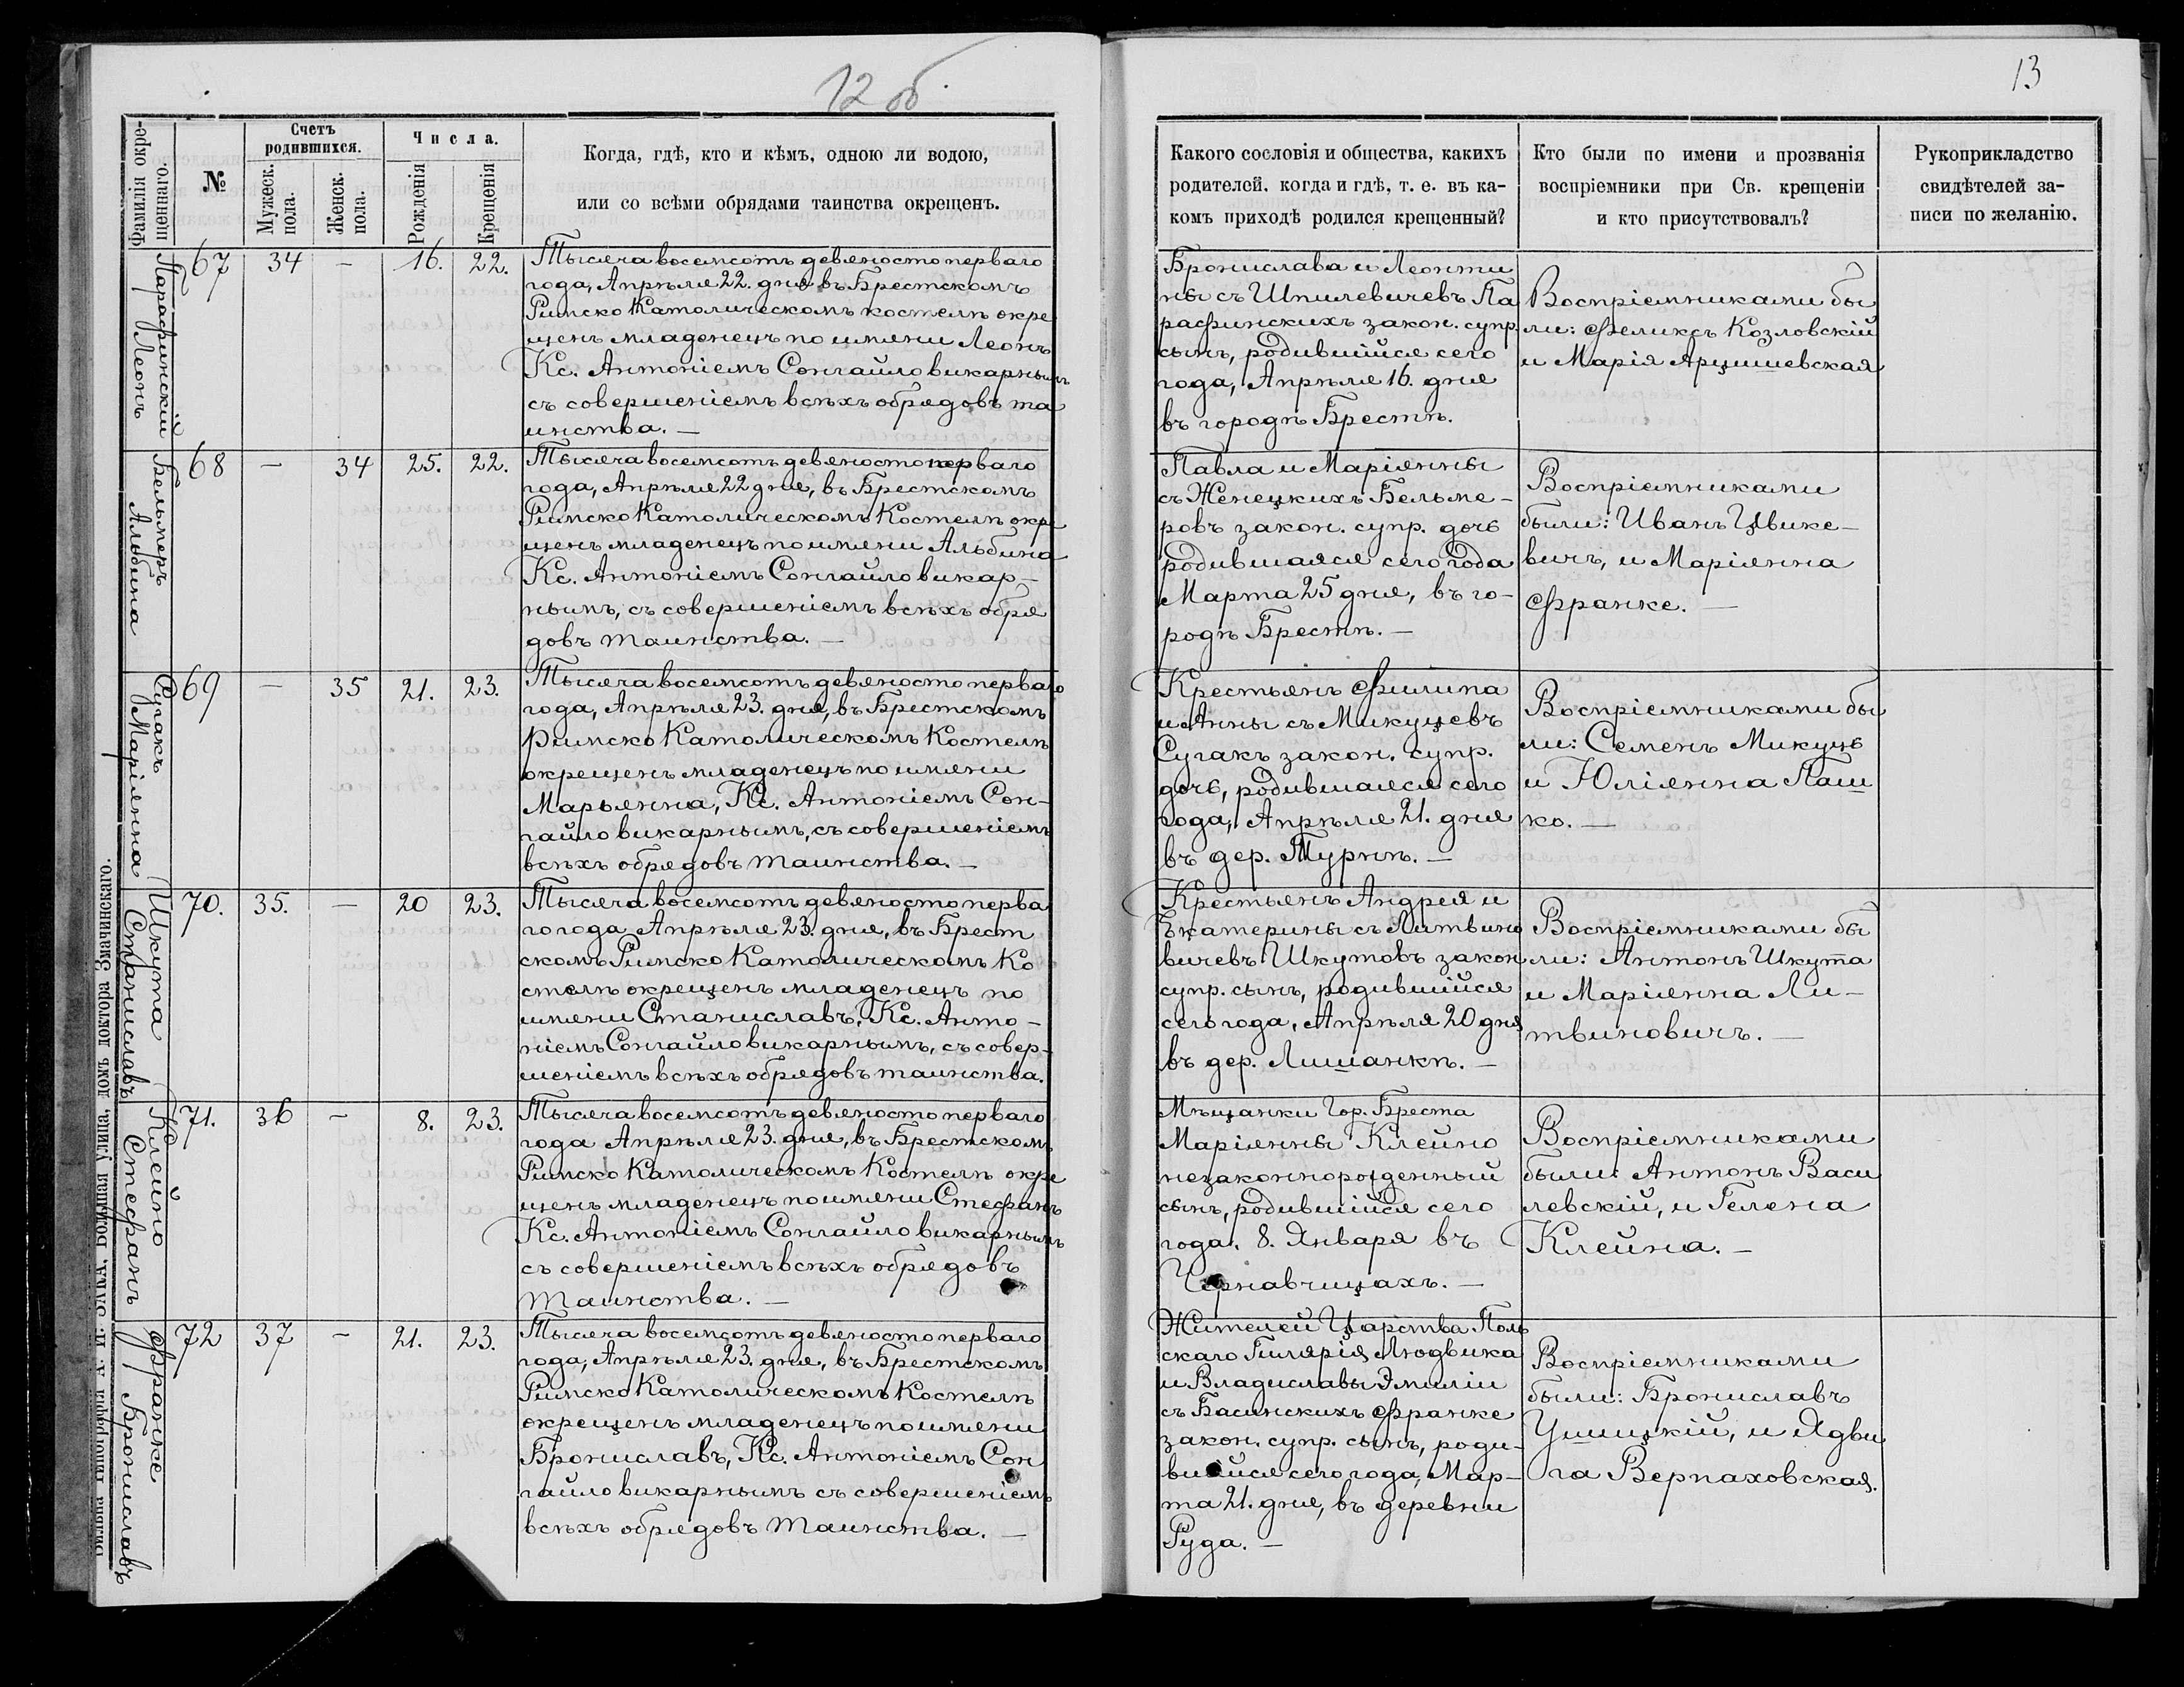 12 об.
13
Фамилія окре-
щеннаго.
№
Счетъ
родившихся.
Мужеск.
пола.
Женск.
пола.
Числа.
Рожденія
Крещенія
Когда, гдѣ, кто и кѣмъ, одною ли водою,
или со всѣми обрядами таинства окрещенъ.
Какого сословія и общества, какихъ
родителей, когда и гдѣ, т. е. въ ка-
комъ приходѣ родился крещенный?
Кто были по имени и прозванія
воспріемники при Св. крещеніи
и кто присутствовалъ?
Рукоприкладство
свидѣтелей за-
писи по желанію.
Парафинскій
Леонъ
67 34 — 16. 22.
Тысяча восемсотъ девяносто перваго
года, Апрѣля 22. дня въ Брестскомъ
Римско Католическомъ костелѣ окре
щенъ младенецъ по имени Леонъ
Кс. Антоніемъ Сонгайло викарнымъ
съ совершеніемъ всѣхъ обрядовъ та
инства. —
Бронислава и Леонти
ны съ Шпилевичевъ Па
рафинскихъ закон. супр.
сынъ, родившійся сего
года, Апрѣля 16. дня
въ городѣ Брестѣ.
Воспріемниками бы
ли: Феликсъ Козловскій
и Марія Арцишевская
Бельмеръ
Альбина
68 — 34 25. 22.
Тысяча восемсотъ девяносто перваго
года, Апрѣля 22 дня, въ Брестскомъ
Римско Католическомъ Костелѣ окре
щенъ младенецъ по имени Альбина
Кс. Антоніемъ Сонгайло викар-
нымъ, съ совершеніемъ всѣхъ обря
довъ таинства. —
Павла и Маріянны
съ Женецкихъ Бельме-
ровъ закон. супр. дочь
родившаяся сего года
Марта 25 дня, въ го-
родѣ Брестѣ. —
Воспріемниками
были: Иванъ Цвике-
вичъ, и Маріянна
Франке. —
Сугакъ
Маріянна
69 — 35 21. 23.
Тысяча восемсотъ девяносто перваго
года, Апрѣля 23. дня, въ Брестскомъ
Римско Католическомъ Костелѣ
окрещенъ младенецъ по имени
Марьянна, Кс. Антоніемъ Сон-
гайло викарнымъ, съ совершеніемъ
всѣхъ обрядовъ таинства. —
Крестьянъ Филипа
и Анны съ Микуцевъ
Сугакъ закон. супр.
дочь, родившаяся сего
года, Апрѣля 21. дня
въ дер. Турнѣ. —
Воспріемниками бы
ли: Семенъ Микуць
и Юліянна Паш
ко. —
Шкута
Станиславъ
70. 35. — 20 23.
Тысяча восемсотъ девяносто перва
го года Апрѣля 23. дня, въ Брест
скомъ Римско Католическомъ Ко
стелѣ окрещенъ младенецъ по
имени Станиславъ, Кс. Анто-
ніемъ Сонгайло викарнымъ, съ совер-
шеніемъ всѣхъ обрядовъ таинства.
Крестьянъ Андрея и
Екатерины съ Литвино
вичевъ Шкутовъ закон
супр. сынъ, родившійся
сего года, Апрѣля 20 дня
въ дер. Лишанкѣ. —
Воспріемниками бы
ли: Антонъ Шкута
и Маріянна Ли-
твиновичъ. —
Клейно
Стефанъ
71. 36 — 8. 23.
Тысяча восемсотъ девяносто перваго
года Апрѣля 23. дня, въ Брестскомъ
Римско Католическомъ Костелѣ окре
щенъ младенецъ по имени Стефанъ
Кс. Антоніемъ Сонгайло викарнымъ
съ совершеніемъ всѣхъ обрядовъ
таинства. —
Мѣщанки Гор. Бреста
Маріянны Клейно
незаконнорожденный
сынъ, родившійся сего
года, 8. Января въ
Чернавчицахъ. —
Воспріемниками
были: Антонъ Васи
левскій, и Гелена
Клейна. —
Франке
Брониславъ
72 37 — 21. 23.
Тысяча восемсотъ девяносто перваго
года, Апрѣля 23. дня, въ Брестскомъ
Римско Католическомъ Костелѣ
окрещенъ младенецъ по имени
Брониславъ, Кс. Антоніемъ Сон
гайло викарнымъ съ совершеніемъ
всѣхъ обрядовъ таинства. —
Жителей Царства Поль
скаго Гилярія Людвика
и Владиславы Эмиліи
съ Басинскихъ Франке
закон. супр. сынъ, роди-
вшійся сего года, Мар-
та 21. дня, въ деревни
Руда. —
Воспріемниками
были: Брониславъ
Ушицкій, и Ядви
га Верпаховская.
улица, домъ доктора Змачинскаго.